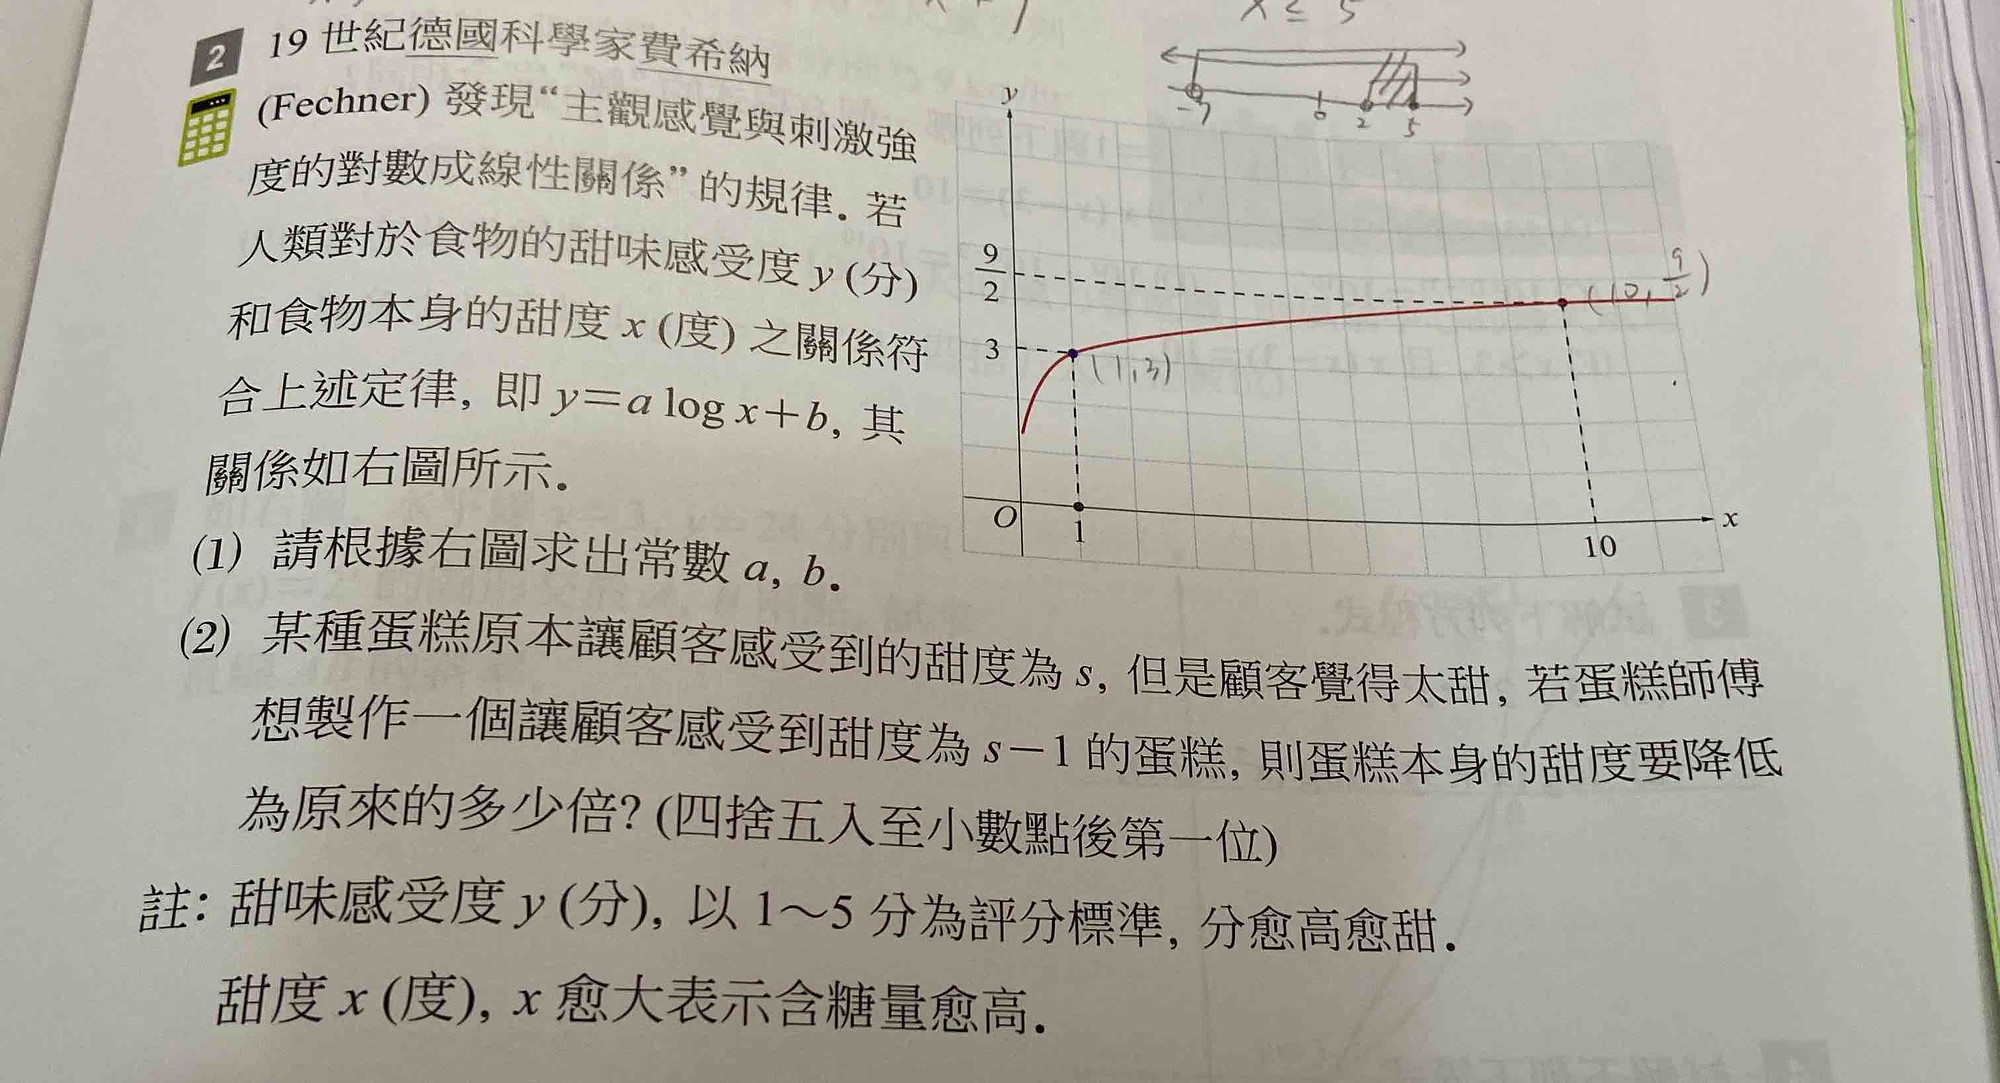 x ≤ 5
2 19 世紀德國科學家費希納
(Fechner) 發現“主觀感覺與刺激強
度的對數成線性關係”的規律. 若
人類對於食物的甜味感受度 y (分)
和食物本身的甜度 x (度) 之關係符
合上述定律, 即 y=a log x+b, 其
關係如右圖所示.
-7 0 2 5
y
9/2
(10, 9/2)
3
(1,3)
O 1 10 x
(1) 請根據右圖求出常數 a, b.
(2) 某種蛋糕原本讓顧客感受到的甜度為 s, 但是顧客覺得太甜, 若蛋糕師傅
想製作一個讓顧客感受到甜度為 s-1 的蛋糕, 則蛋糕本身的甜度要降低
為原來的多少倍? (四捨五入至小數點後第一位)
註: 甜味感受度 y (分), 以 1～5 分為評分標準, 分愈高愈甜.
甜度 x (度), x 愈大表示含糖量愈高.